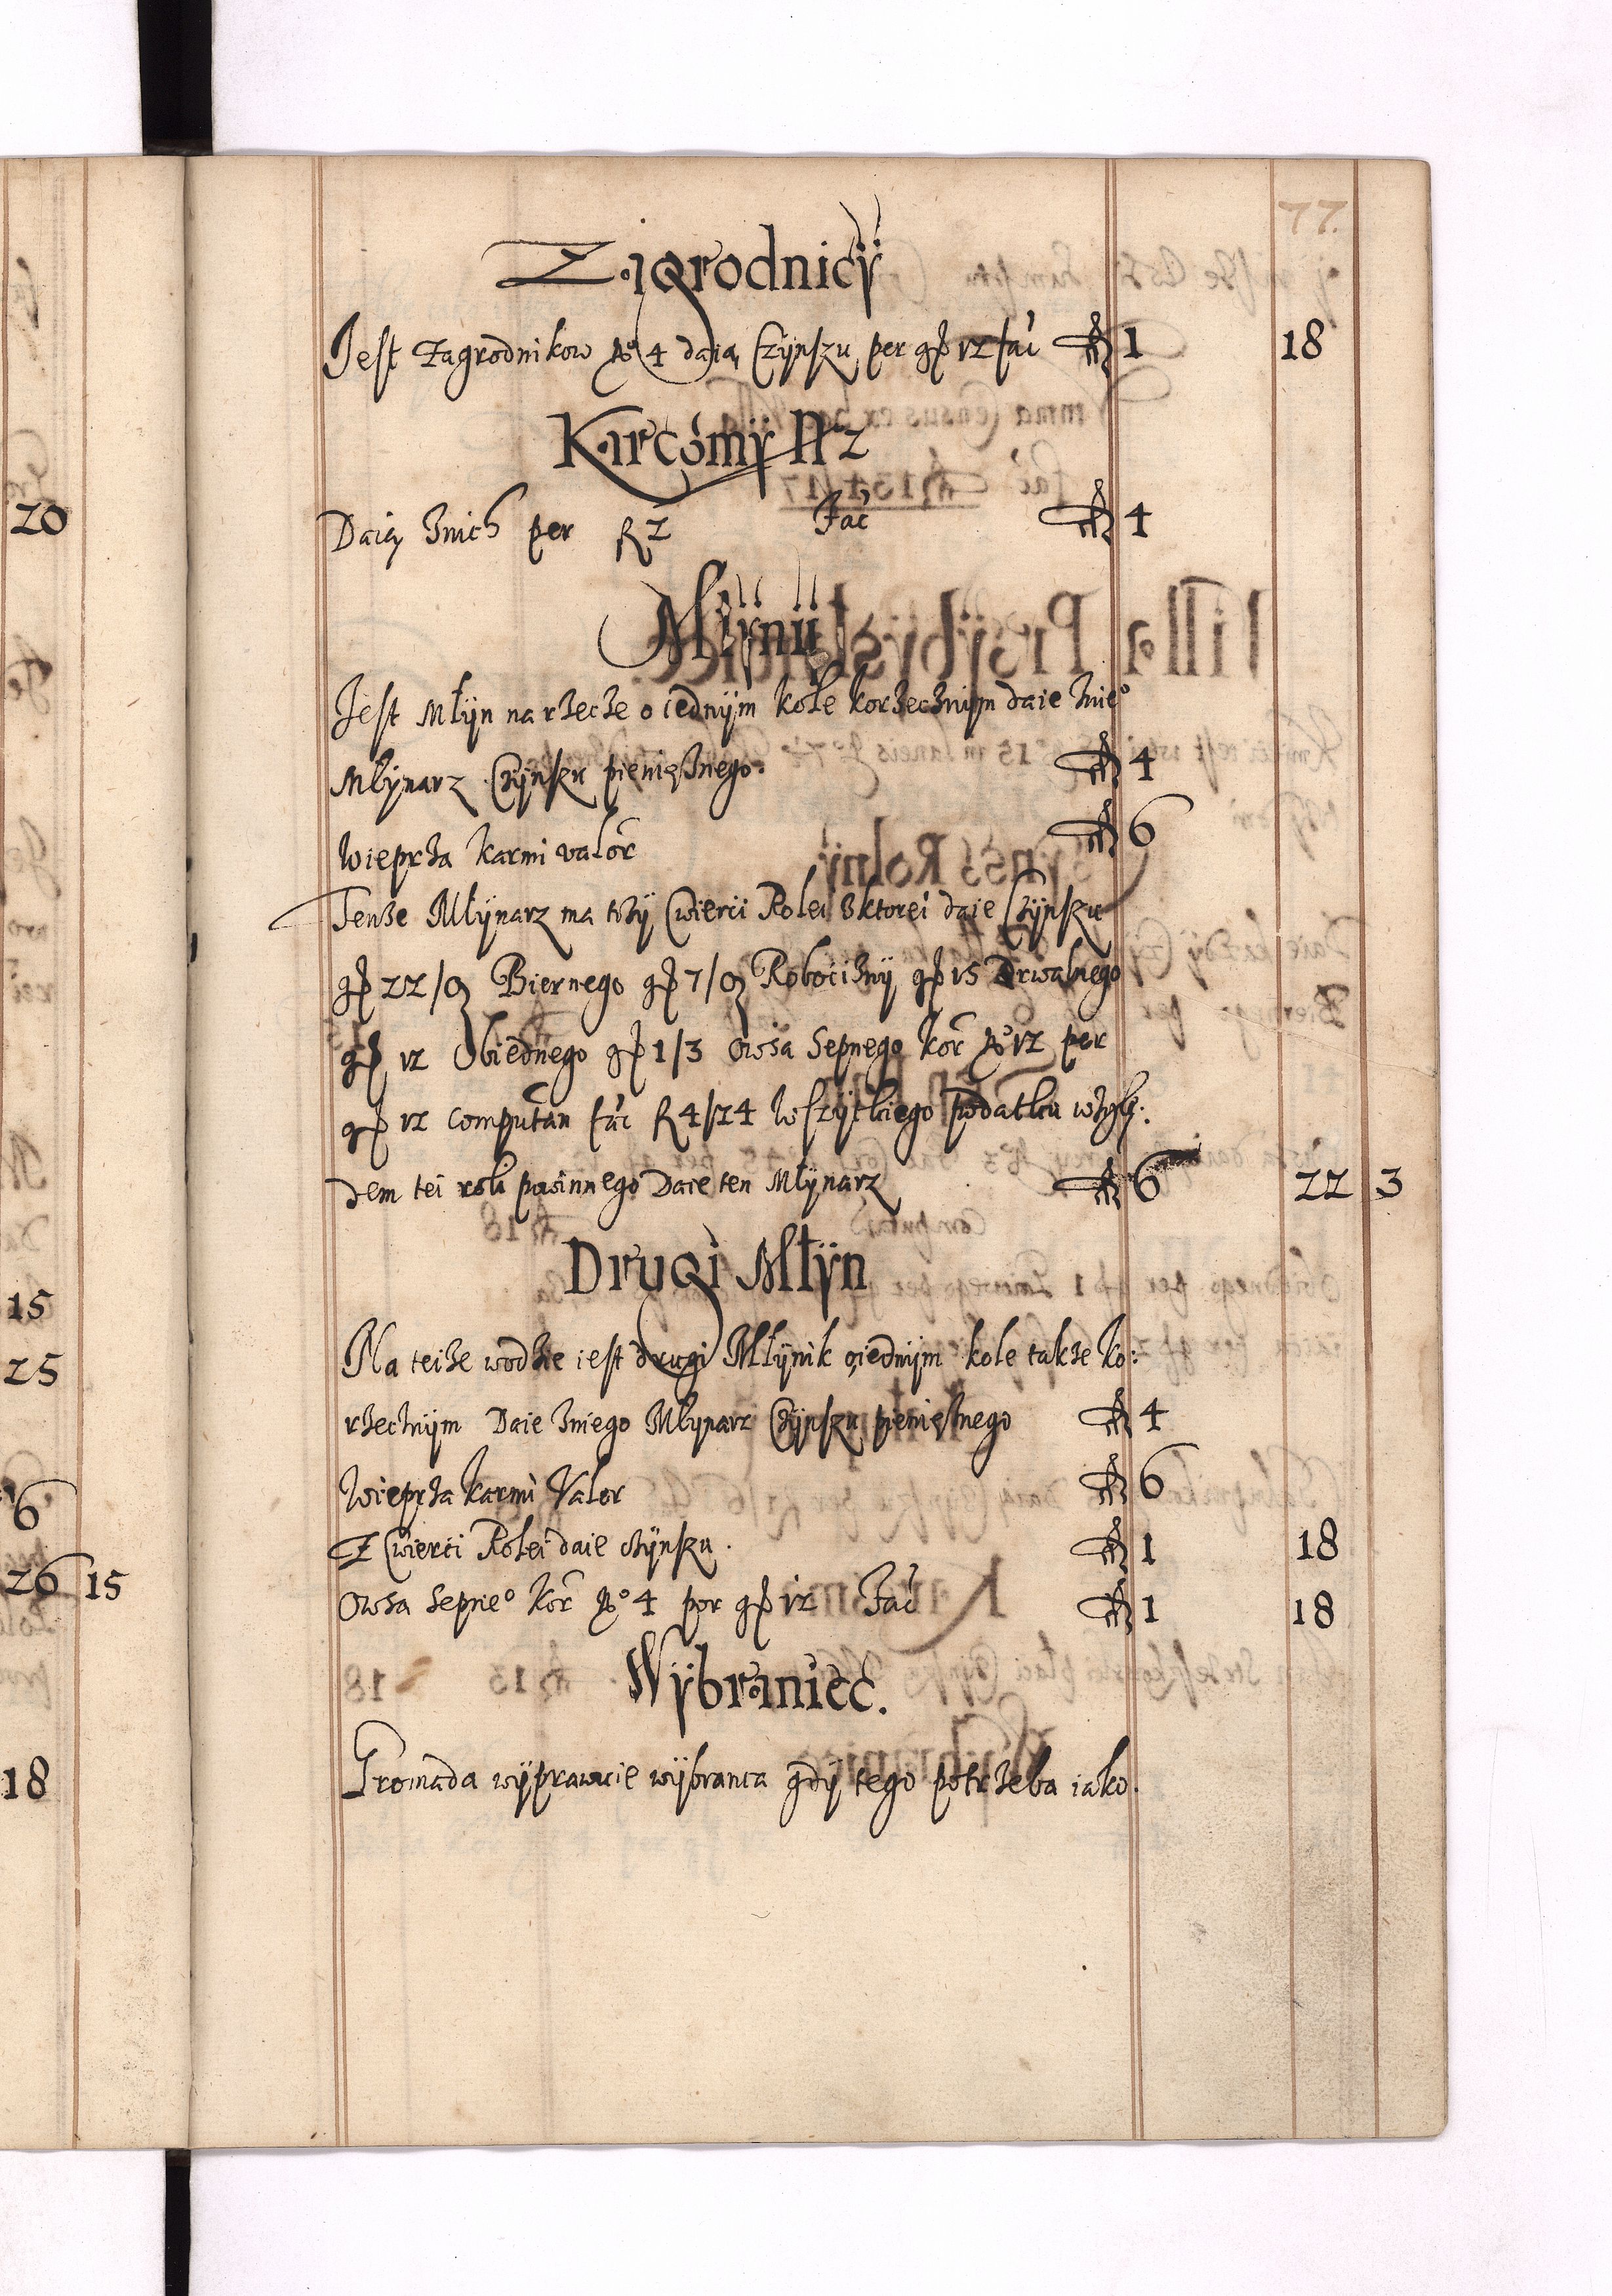 77.
Zagrodnicÿ
Jest zagrodnikow No 4 daią Czÿnszu per gr 12 fać f 1 18
Karcżmÿ II 2
Daią znich per f 2 Fać f 4
Młÿnÿ
Jest Młÿn na rzecze o iednÿm kole korzecznÿm daie znieo
Młÿnarz Czÿnszu pieniężnego. f 4
Wieprza karmi valor f 6
Tenże Młÿnarz ma trzÿ Cwierci Rolei zktorei daie Czÿnszu
gr 22/9 Biernego gr 7/9 Robociznÿ gr 15 Drwalnego
gr 12 Obiednego gr 1/3 Owsa Sepnego kor No 12 per
gr 12 computan fać f 4/24 Wszÿtkiego podatku wzglę:
dem tei roli powinnego Daie ten Młÿnarz f 6 22 3
Drugi Młÿn
Na teize wodzie iest drugi Młÿnik oiednÿm kole takze ko:
rzecznÿm Daie zniego Młynarz Czÿnszu pieniężnego f 4
Wieprza karmi Valor f 6
Z Cwierci Rolei daie czÿnszu. f 1 18
Owsa Sepneo kor No 4 per gr 12 Fać f 1 18
Wÿbraniec.
Gromada wÿprawuie wÿbranca gdÿ tego potrzeba iako.
20
15
25
6
26 15
18